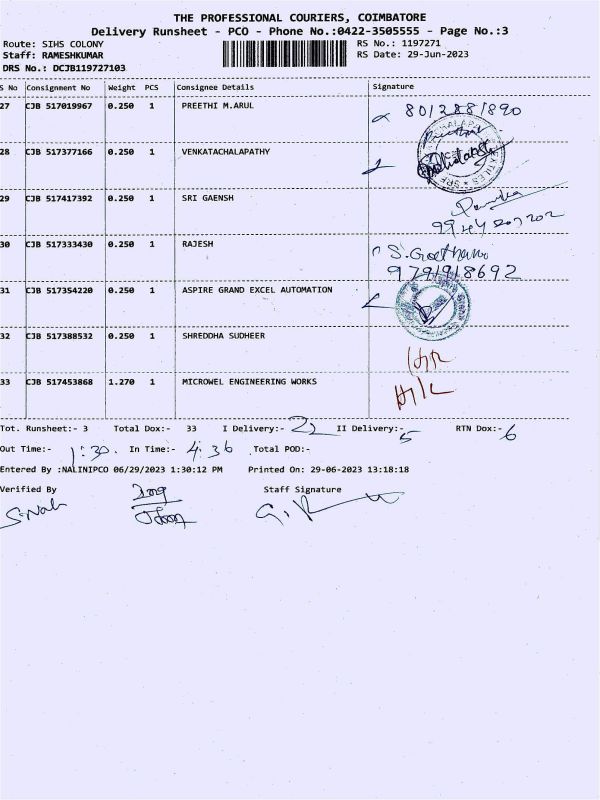 THE PROFESSIONAL COURIERS, COIMBATORE
Delivery Runsheet - PCO - Phone No.:0422-3505555 - Page No.:3
Route: SIHS COLONY RS No.: 1197271
Staff: RAMESHKUMAR RS Date: 29-Jun-2023
DRS No.: DCJB119727103
S No Consignment No Weight PCS Consignee Details Signature
27 CJB 517019967 0.250 1 PREETHI M.ARUL 8012881890
28 CJB 517377166 0.250 1 VENKATACHALAPATHY
29 CJB 517417392 0.250 1 SRI GAENSH
30 CJB 517333430 0.250 1 RAJESH
9791918692
31 CJB 517354220 0.250 1 ASPIRE GRAND EXCEL AUTOMATION
32 CJB 517388532 0.250 1 SHREDDHA SUDHEER
33 CJB 517453868 1.270 1 MICROWEL ENGINEERING WORKS
Tot. Runsheet:- 3 Total Dox:- 33 I Delivery:- 22 II Delivery:- 5 RTN Dox:- 6
Out Time:- 1:30. In Time:- 4:36 Total POD:-
Entered By :NALINIPCO 06/29/2023 1:30:12 PM Printed On: 29-06-2023 13:18:18
Verified By Staff Signature